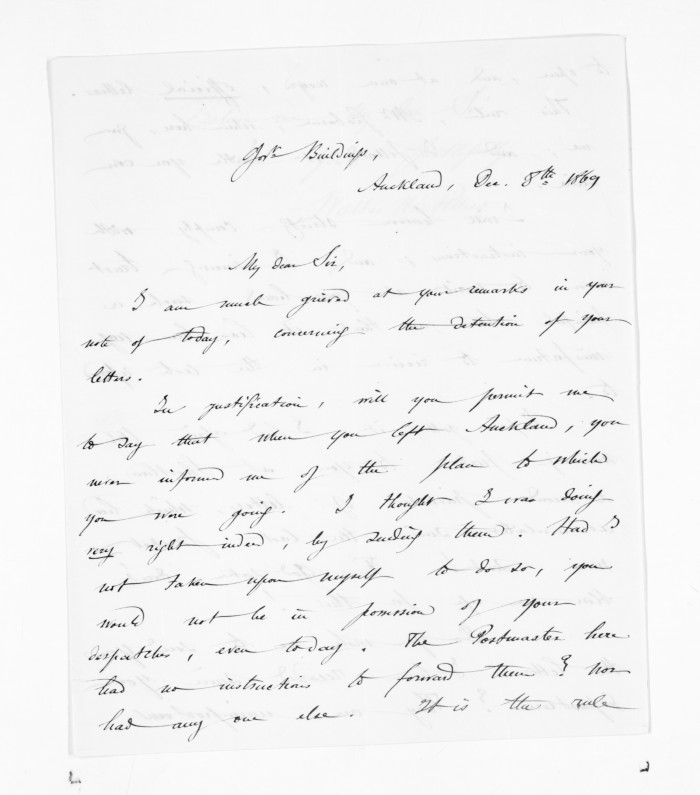 York Buildings,
Auckland, Dec. 8th 1869
My dear Sir,
I am much grieved at your remarks in your
note of today, concerning the detention of your
letters.
In justification, will you permit me
to say that when you left Auckland, you
never informed me of the place to which
you were going. I thought I was doing
very right indeed, by sending them. Had I
not taken upon myself to do so, you
would not be in possession of your
despatches, even today. The Postmaster here
had no instructions to forward them & nor
had any one else. It is the rule